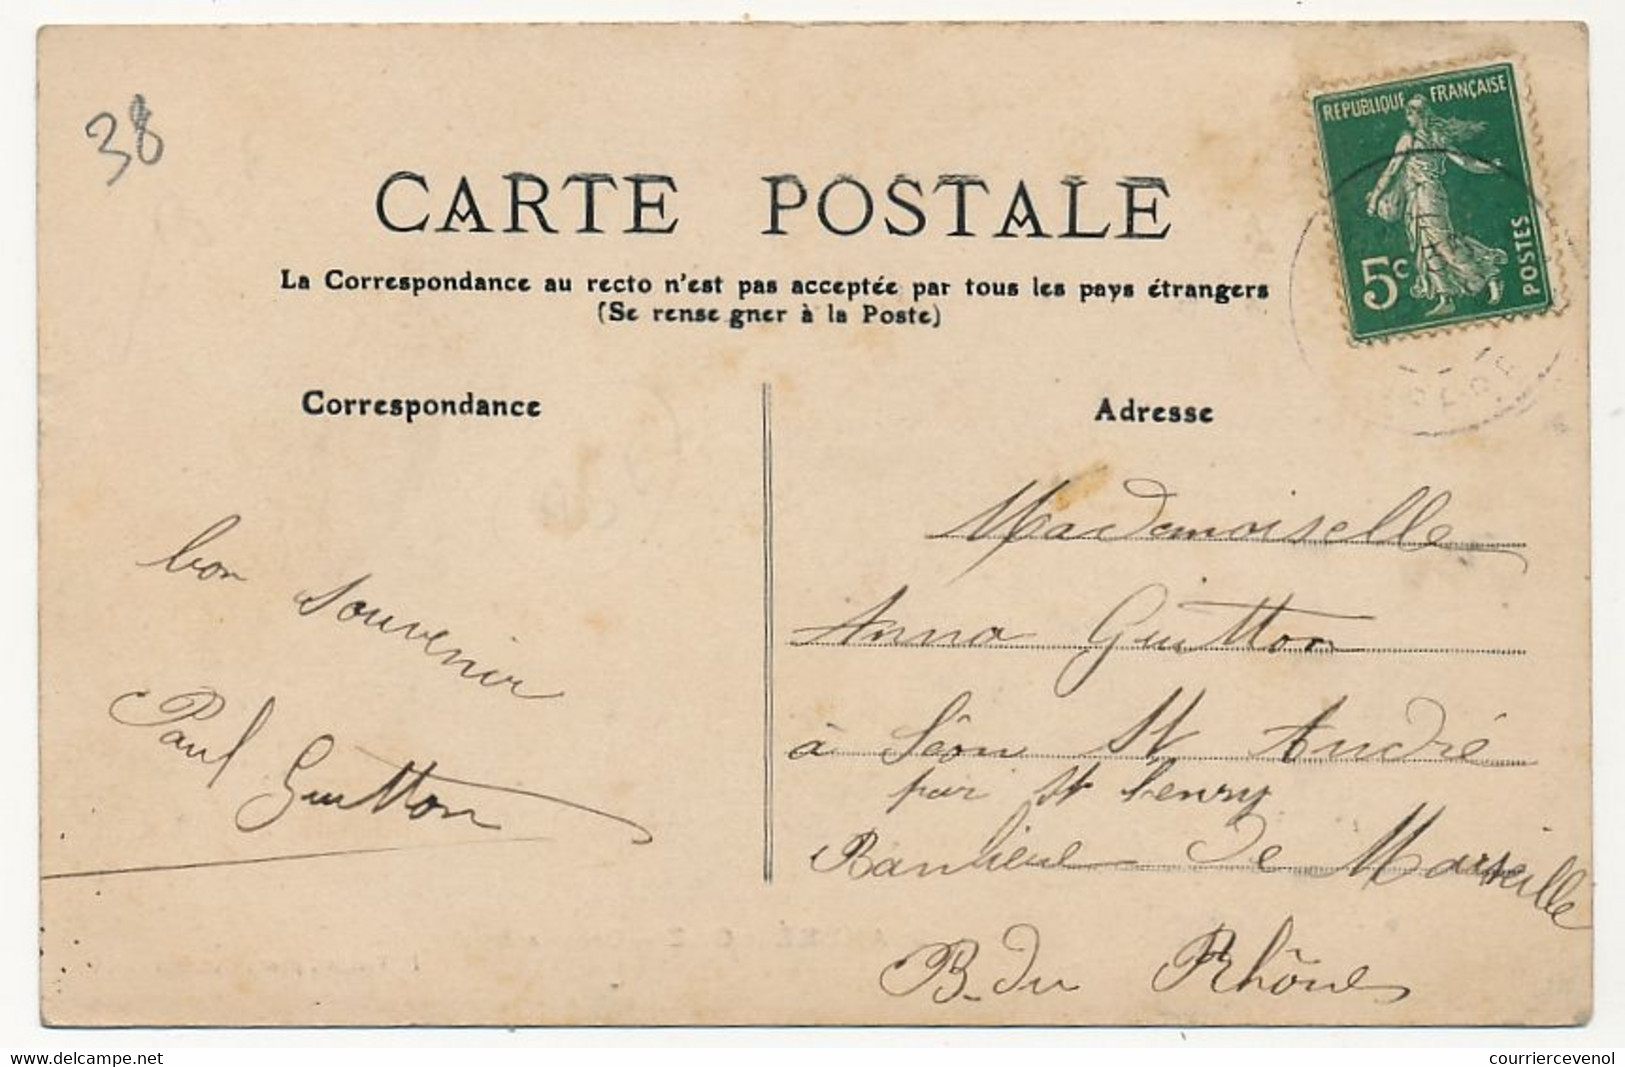 38
CARTE POSTALE
La Correspondance au recto n'est pas acceptée par tous les pays étrangers
(Se rense gner à la Poste)
REPUBLIQUE FRANÇAISE
5c
POSTES
Correspondance
Adresse
bon souvenir
Paul Guitton
Mademoiselle
Anna Guitton
à Séon St André
par St henry
Banlieue de Marseille
B. du Rhône
delcampe.net
courriercevenol